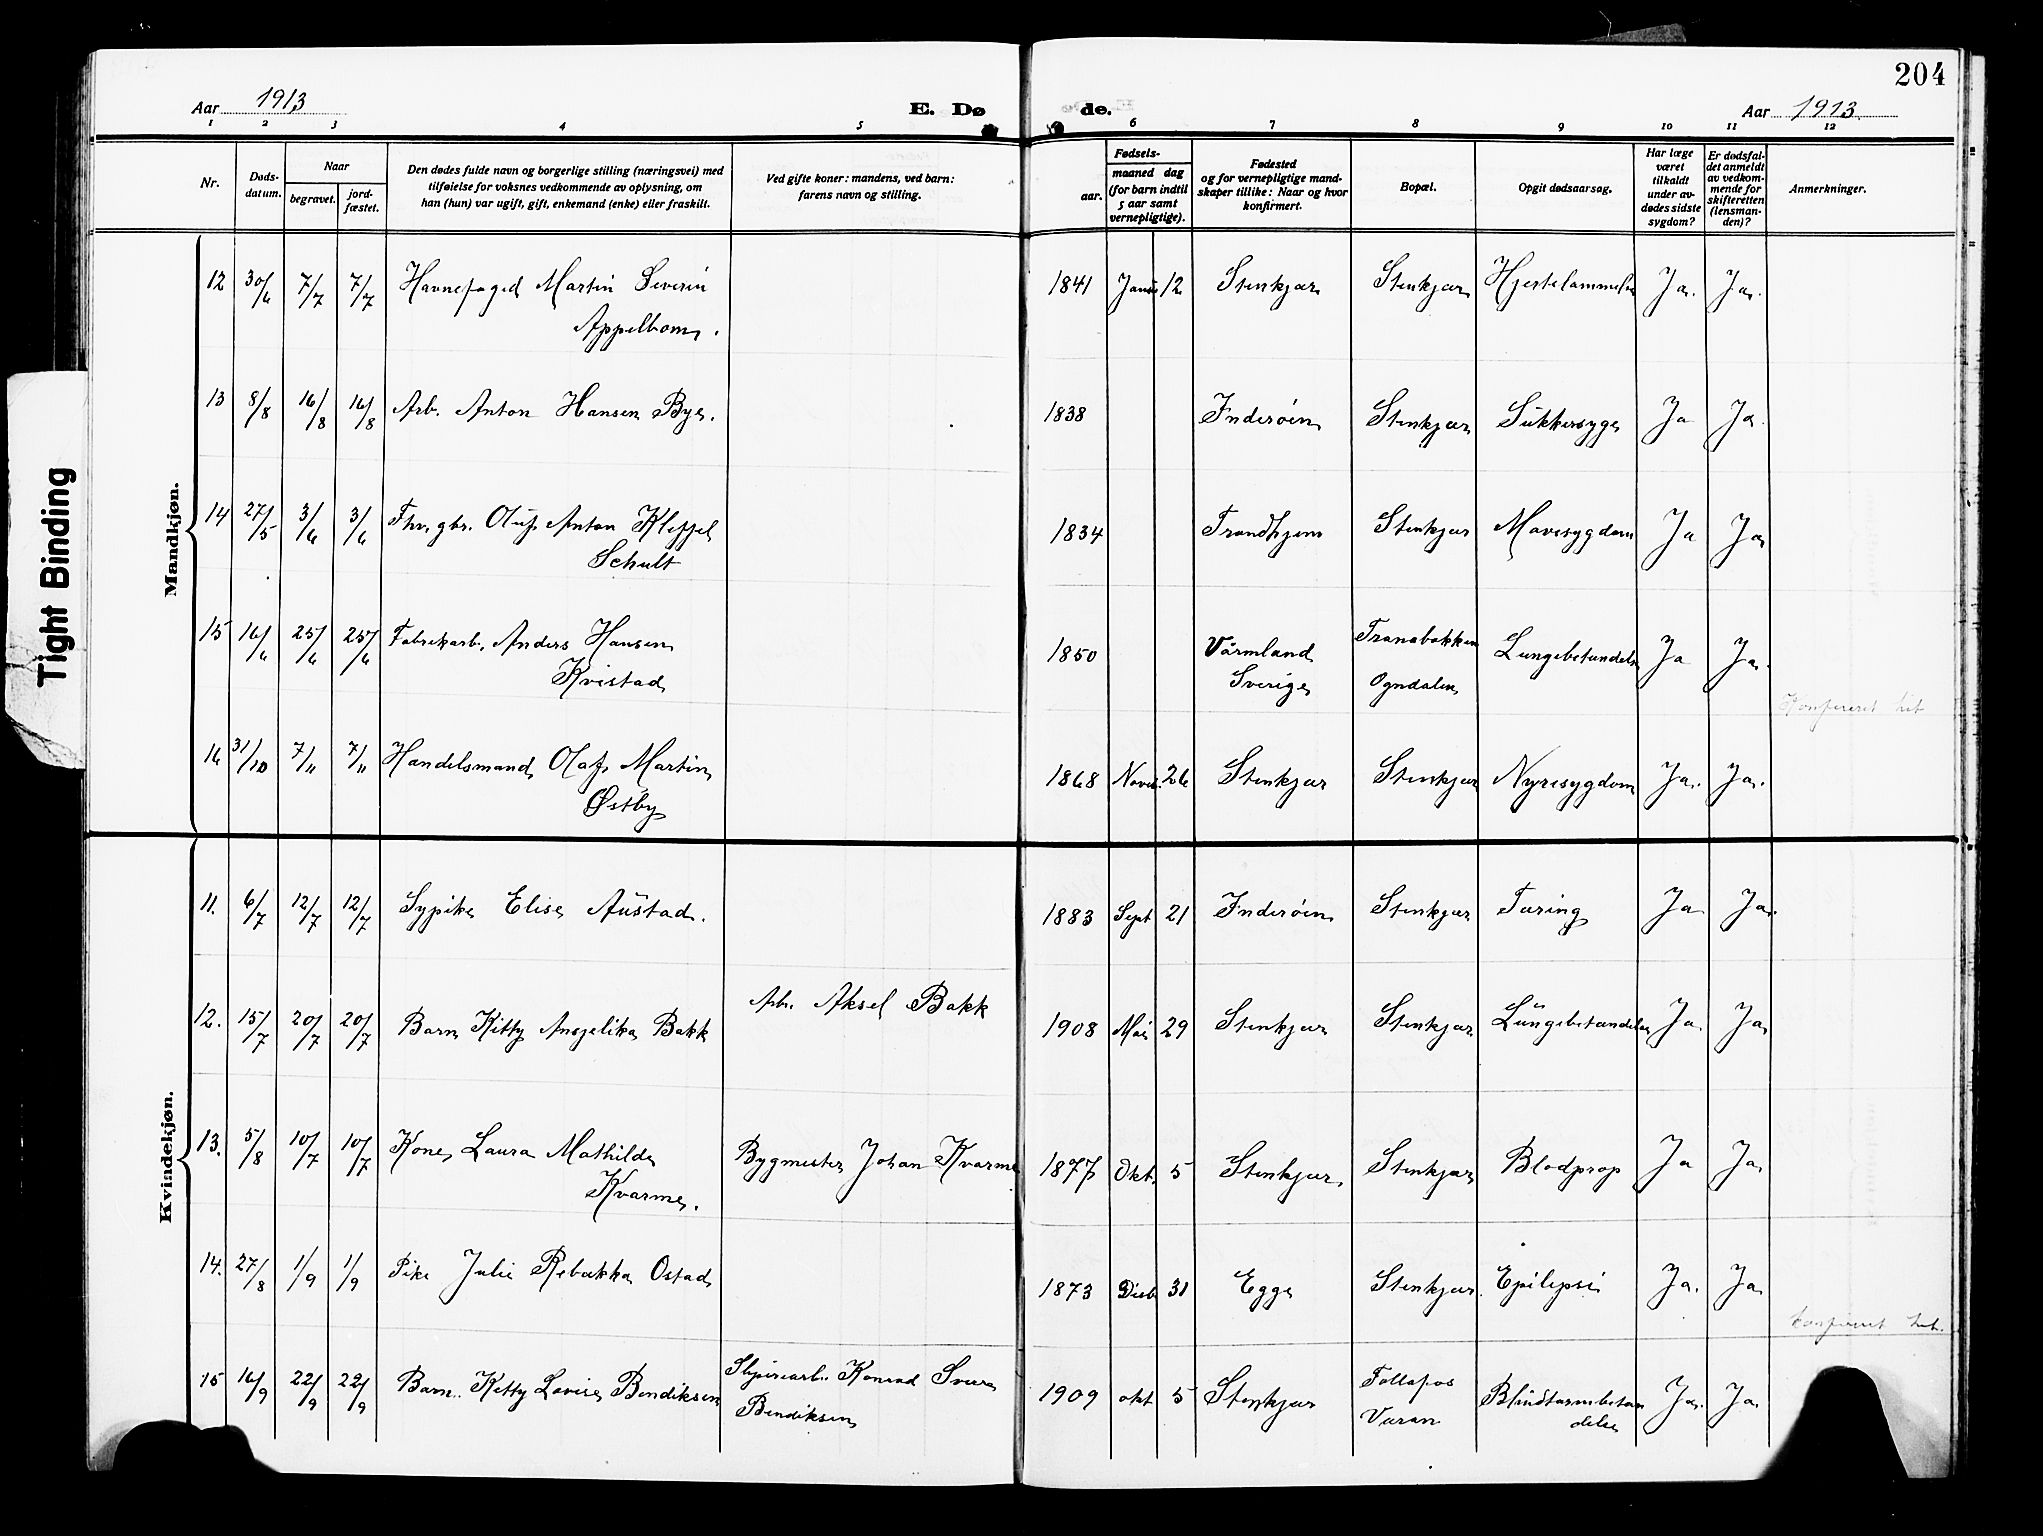 204
Aar 1913
E. Døde.
Aar 1913.
1 2 3 4 5 6 7 8 9 10 11 12
Nr.
Døds-
datum.
Naar
begravet.
jord-
fæstet.
Den dødes fulde navn og borgerlige stilling (næringsvei) med
tilføielse for voksnes vedkommende av oplysning, om
han (hun) var ugift, gift, enkemand (enke) eller fraskilt.
Ved gifte koner: mandens, ved barn:
farens navn og stilling.
Fødsels-
aar.
maaned dag
(for barn indtil
5 aar samt
vernepligtige).
Fødested
og for vernepligtige mand-
skaper tillike: Naar og hvor
konfirmert.
Bopæl.
Opgit dødsaarsag.
Har læge
været
tilkaldt
under av-
dødes sidste
sygdom?
Er dødsfal-
det anmeldt
av vedkom-
mende for
skifteretten
(lensman-
den)?
Anmerkninger.
Tight Binding
Mandkjøn.
12 30/6 7/7 7/7 Havnefoged Martin Severin 1841 Janu 12 Stenkjær Stenkjær Hjertelammelse Ja. Ja.
Appelbom.
13 8/8 16/8 16/8 Arb. Anton Hansen Bye. 1838 Inderøen Stenkjær Sukkersyge Ja Ja.
14 27/5 3/6 3/6 Fhv. gbr. Oluf Anton Kleffel 1834 Trondhjem Stenkjær Mavesygdom Ja Ja
Schult
15 16/6 25/6 25/6 Fabrikarb. Anders Hansen 1850 Värmland Tranabakken Lungebetændelse Ja Ja.
Kvistad Sverige Ogndalen
Konfereret hit
16 31/10 7/11 7/11 Handelsmand Olaf Martin 1868 Novb. 26 Stenkjær Stenkjær Nyresygdom Ja. Ja.
Østby
Kvindekjøn.
11. 6/7 12/7 12/7 Sypike Elise Austad. 1883 Sept 21 Inderøen Stenkjær Tæring Ja Ja.
12. 15/7 20/7 20/7 Barn Kitty Angelika Bakk Arb. Aksel Bakk 1908 Mai 29 Stenkjær Stenkjær Lungebetændelse Ja. Ja
13. 5/8 10/7 10/7 Kone Laura Mathilde Bygmester Johan Kvarme 1877 Okt. 5 Stenkjær Stenkjær Blodprop Ja Ja
Kvarme.
14. 27/8 1/9 1/9 Pike Julie Rebækka Ostad 1873 Desb 31 Egge Stenkjær. Epilepsi Ja. Ja
Konfereret hit.
15 16/9 22/9 22/9 Barn Kitty Lovise Bendiksen Sliperiarb. Konrad Sverre 1909 okt 5 Stenkjær Follafos Blindtarmbetæn Ja. Ja
Bendiksen Værran delse